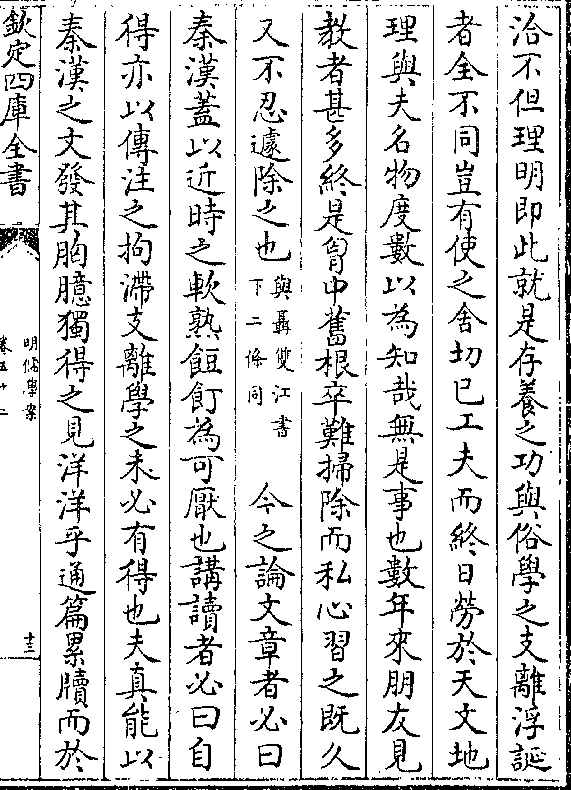 洽不但理明即此就是存養之功與俗學之支離浮誕
者全不同豈有使之舍切已工夫而終日勞於天文地
理與夫名物度數以為知哉無是事也數年來朋友見
教者甚多終是胷中舊根卒難掃除而私心習之既久
又不忍遽除之也與聶雙江書下二條同　今之論文章者必曰
秦漢蓋以近時之軟熟飣餖為可厭也講讀者必曰自
得亦以傳注之拘滯支離學之未必有得也夫真能以
秦漢之文發其胸臆獨得之見洋洋乎通篇累牘而於
欽定四庫全書
明儒學案
卷五十二
十三